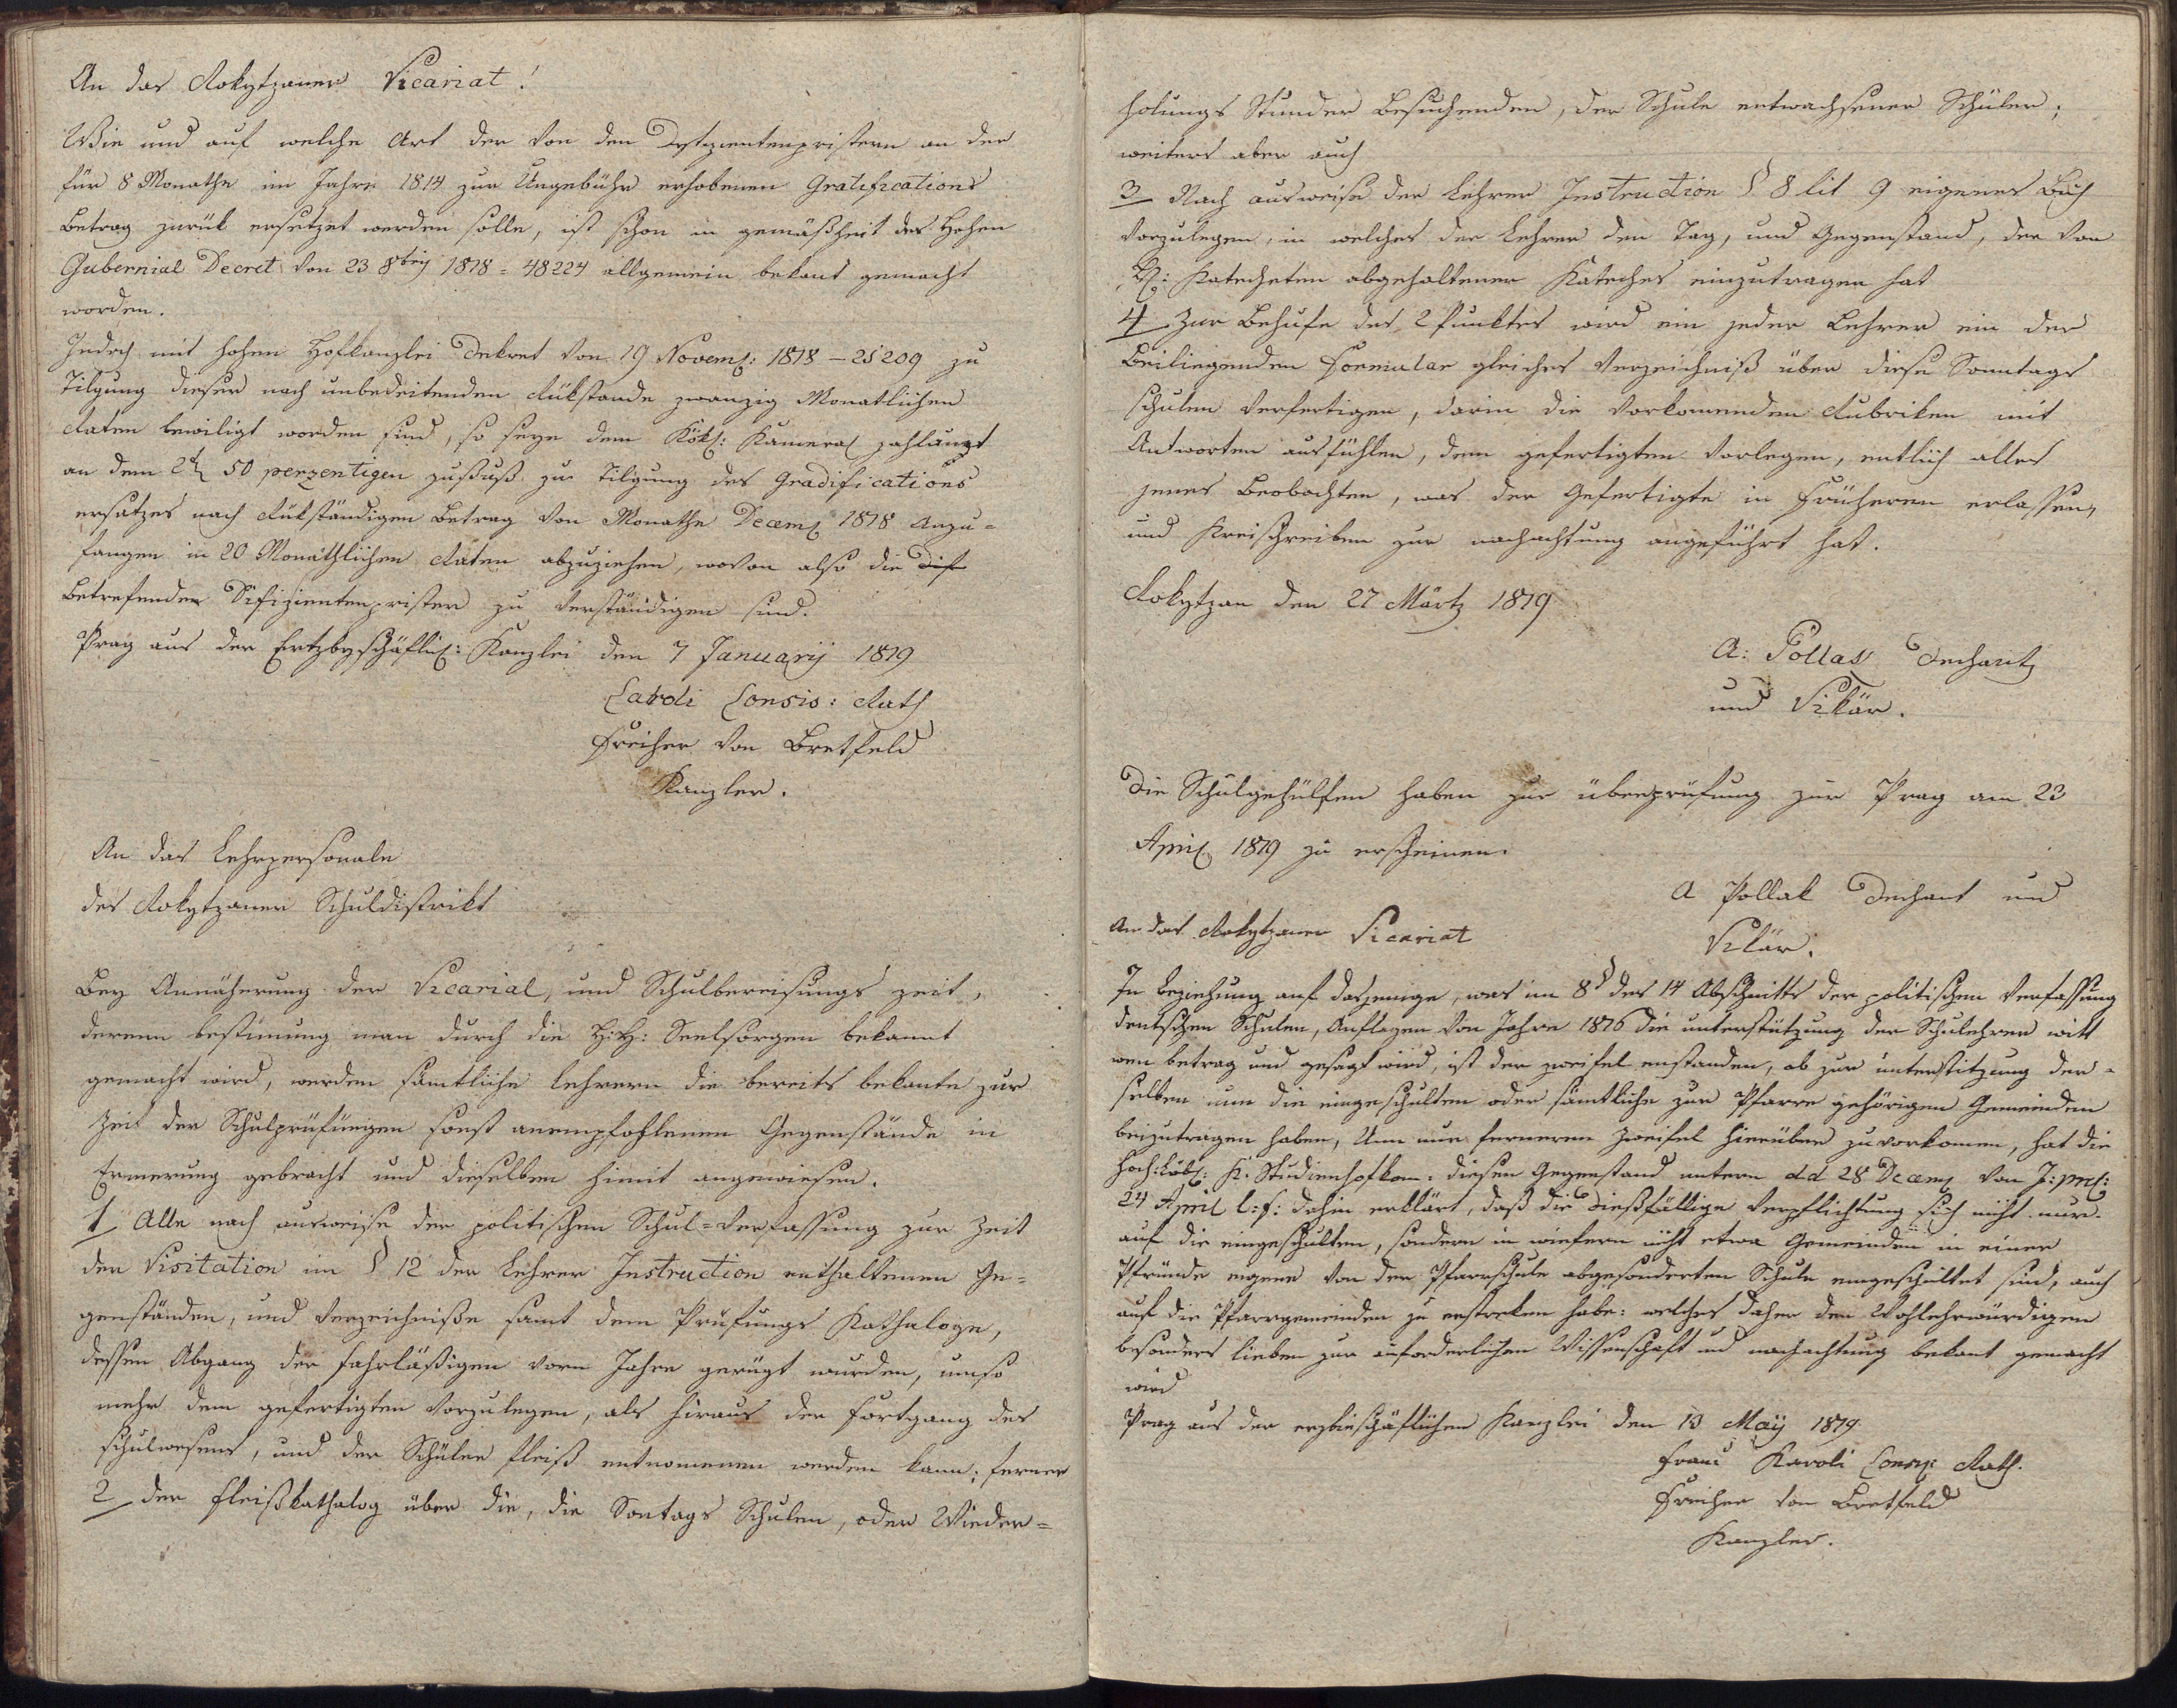 An das Rokytzaner Vicariat!
Wie und auf welche Art der von den Defizientenpristern an der
für 8 Monathe im Jahre 1814 zur Ungebühr erhobenen Gratifications
Betrag zurük ersetzet werden solle, ist schon in gemäßheit des Hohen
Gubernial Decret von 23 8brij 1818 = 48224 allgemein bekant gemacht
worden.
Jedoch mit hohen Hofkanzlei Dekret von 19 Novem: 1818 – 25209 zu
Tilgung dieser noch unbedeitenden Rükstande zwanzig Monatlichen
Raten bewiligt worden sind, so seye dem Kamera zahlamt
an dem 50 perzentigen zuschuß zur Tilgung des Gradifications
ersatzes noch Rükständigen Betrag von Monathe Decem 1818 Anzu=
fangen in 20 Monathlichen Raten abzuziehen, wovon also die dif
Betrefenden Difizientenprister zu verständigen sind.
Prag aus der Ertzbyschäflich: Kanzlei den 7 Januarij 1819
Caroli Consis: Rath
Freiher von Bretfeld
Kanzler.
An das Lehrpersonale
des Rokytzaner Schuldistrikt
Bey Annäherung der Vicarial, und Schulbereisungs zeit,
derenn bestimung man durch die H:H: Seelsorgen bekannt
gemacht wird, werden sämtliche Lehrern die bereits bekante zur
Zeit der Schulprüfungen sonst anempfohlenen Gegenstände in
Ermerung gebracht und dieselben himit angewiesen.
1 Alle nach ausweise der politischen Schul=Verfassung zur Zeit
der Visitation im § 12 der Lehrer Instruction enthaltenen Ge=
genständen, und Verzeichniße samt dem Prüfungs Kathaloge,
dessen Abgang der fahrläßigen vorm Jahre gerügt wurden, umso
mehr dem gefertigten vorzulegen, als hiraus der Fortgang des
schulwesens, und der Schüler fleiß entnomenen werden kann; ferner
2 der fleißkathalog über die, die Sontags Schulen, oder Wieder=
holungs Stunder Besuchenden, der Schule entwachsener Schüler;
weiters aber auch
3 Nach ausweise der Lehrer Instruction § 8 lit 9 eigenes Buch
vorzulegen, in welches der Lehrer den Tag, und Gegenstand, der von
H: Katecheten abgehaltener Kateches einzutragen hat
4 Zur Behufe des 2 Punktes wird ein jeder Lehrer ein der
Beiliegenden Formular gleiches Verzeichniß über diese Sonntags
schulen verfertigen, darin die vorkomenden Rubriken mit
Antworten ausfühlen, dem gefertigten vorlegen, entlich alles
jenes Beobachten, was der Gefertigte in früheren erlassen,
und Kreisschreiben zur nachachtung angeführt hat.
Rokytzan den 27 Märtz 1819
A: Pollak Dechant
und Vikär.
Die Schulgehülfen haben zur überprüfung zur Prag am 23
April 1819 zu erscheinen.
A Pollak Dechant und
Vikär.
An das Rokytzaner Vicariat
In Beziehung auf dasjenige, was im 8§ des 14 Abschnitts der politischen Verfassung
deutschen Schulen, Auflagen von Jahre 1816 die unterstützung der Schulehrer witt
wen betrag und gesagt wird, ist der zweifel enstanden, ob zur unterstitzung der=
selben nur die eingeschulten oder sämtliche zur Pfarre gehörigen Gemeinden
beizutragen haben, Um nun ferneren Zweifel hierüber zuvorkomen, hat die
Hoch:Löb: K. Studienhofkom: diesen Gegenstand untern dd 28 Decem von J: pres:
24 April l:f: dahin erklärt, daß die dießfällige Verpflichtung sich nicht nur
auf die eingeschulten, sondern in wiefern nicht etwa Gemeinden in einer
Pfründe eigene von der Pfarrschule abgesonderten Schule eingeschultet sind, auch
auf die Pfarrgemeinden zu erstreken habe: welches daher den Wohlehrwürdigen
besonders lieben zur erforderlichen Wissenschaft und nachachtung bekant gemacht
wird
Prag aus der erzbieschäflichen Kanzlei den 13 Maÿ 1819.
Franz Karoli Rath.
Freiher von Bretfeld
Kanzler.